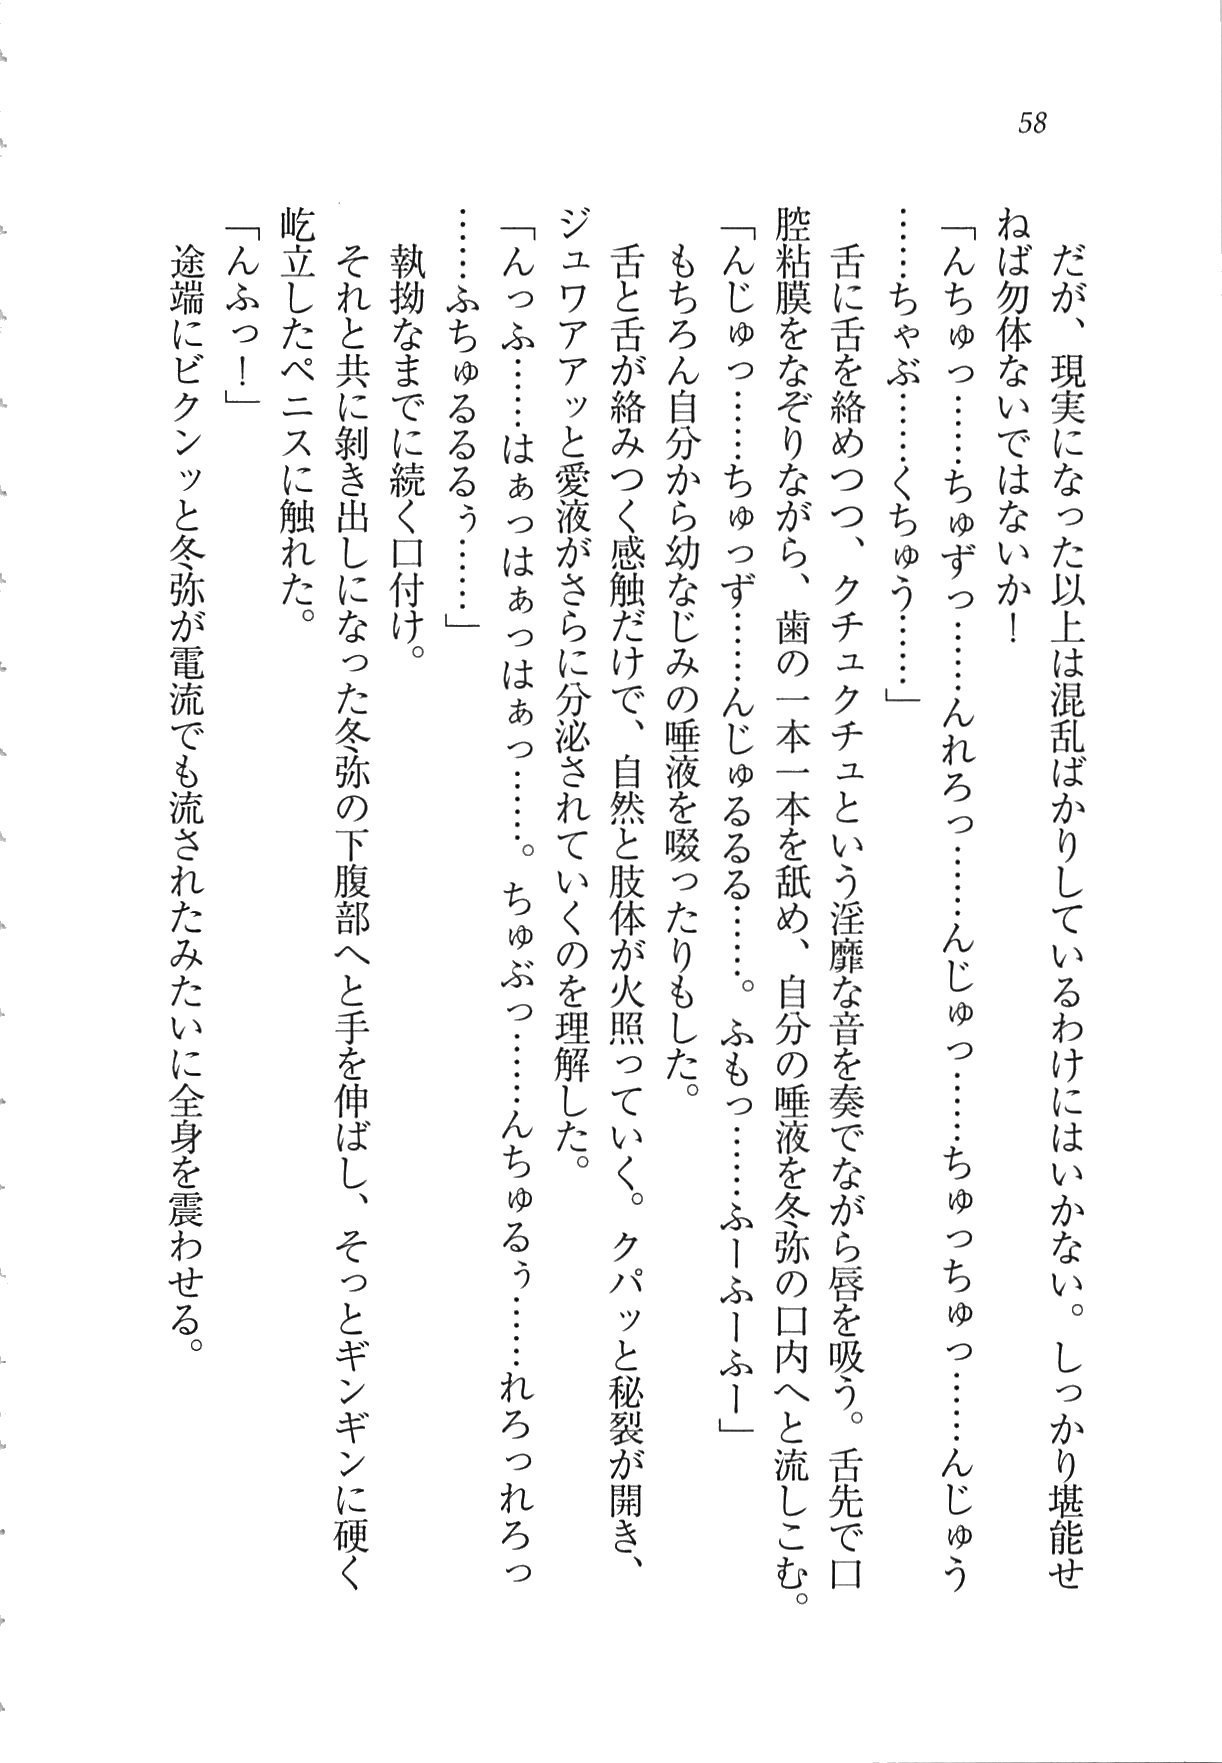 58
だが、現実になった以上は混乱ばかりしているわけにはいかない。しっかり堪能せ
ねば勿体ないではないか！
「んちゅっ……ちゅずっ……んれろっ……んじゅっ……ちゅっちゅっ……んじゅう
……ちゃぶ……くちゅう……」
舌に舌を絡めつつ、クチュクチュという淫靡な音を奏でながら唇を吸う。舌先で口
腔粘膜をなぞりながら、歯の一本一本を舐め、自分の唾液を冬弥の口内へと流しこむ。
「んじゅっ……ちゅっず……んじゅるるる……。ふもっ……ふーふーふー」
もちろん自分から幼なじみの唾液を啜ったりもした。
舌と舌が絡みつく感触だけで、自然と肢体が火照っていく。クパッと秘裂が開き、
ジュワアアッと愛液がさらに分泌されていくのを理解した。
「んっふ……はぁっはぁっはぁっ……。ちゅぶっ……んちゅるぅ……れろっれろっ
……ふちゅるるるぅ……」
執拗なまでに続く口付け。
それと共に剝き出しになった冬弥の下腹部へと手を伸ばし、そっとギンギンに硬く
屹立したペニスに触れた。
「んふっ！」
途端にビクンッと冬弥が電流でも流されたみたいに全身を震わせる。